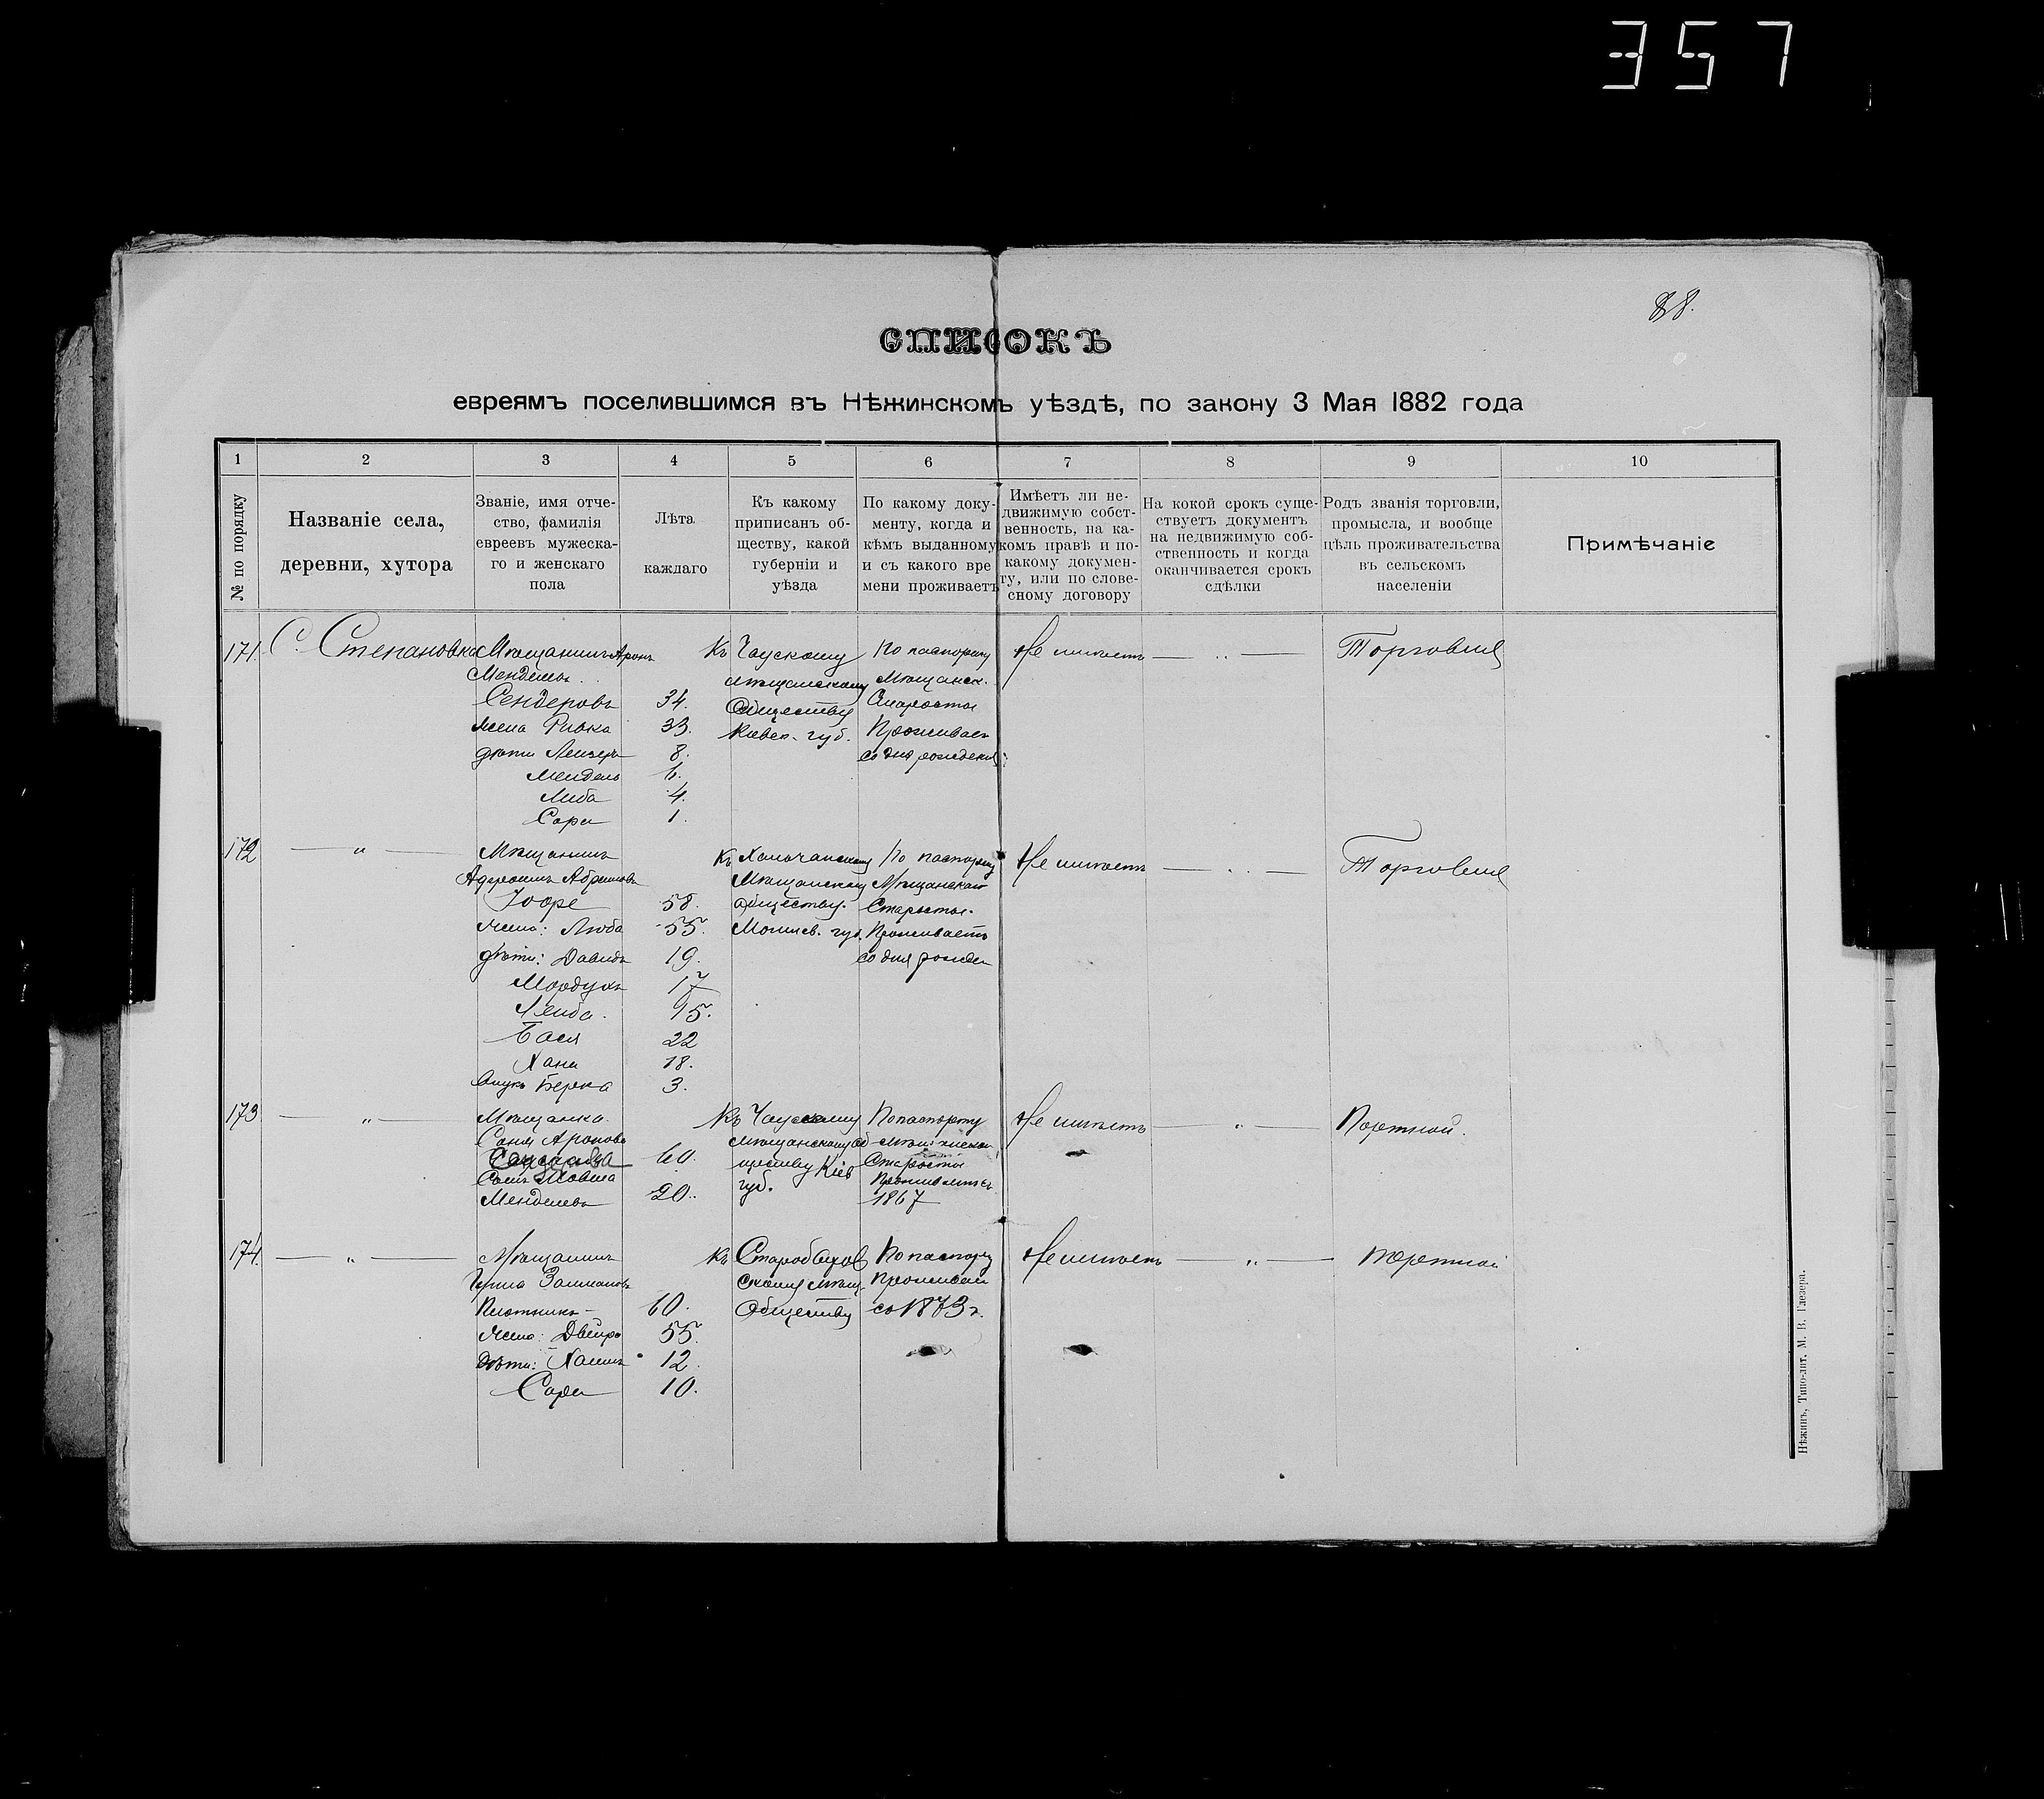 357
88.
СПИСОКЪ
евреямъ поселившимся въ Нѣжинскомъ уѣздѣ, по закону 3 Мая 1882 года
1 2 3 4 5 6 7 8 9 10
№ по порядку
Названіе села,
деревни, хутора
Званіе, имя отче-
ство, фамилія
евреевъ мужеска-
го и женскаго
пола
Лѣта
каждаго
Къ какому
приписанъ об-
ществу, какой
губерніи и
уѣзда
По какому доку-
менту, когда и
кѣмъ выданному
и съ какого вре
мени проживаетъ
Имѣетъ ли не-
движимую собст-
венность, на ка-
комъ правѣ и по-
какому докумен-
ту, или по слове-
сному договору
На кокой срокъ суще-
ствуетъ документъ
на недвижимую соб-
ственность и когда
оканчивается срокъ
сдѣлки
Родъ званія торговли,
промысла, и вообще
цѣль проживательства
въ сельскомъ
населеніи
Примѣчаніе
171. С. Степановка
Мѣщанинъ Аронъ
Менделевъ
Сендеровъ 34.
жена Ривка 33.
дѣти Лейзеръ 8.
Мендель 6.
Либа 4.
Сора 1.
Къ Чаускому
мѣщанскому
Обществу
Киевск. губ.
По паспорту
Мѣщанск.
Старосты
Проживает
со дня рожденія
Не имѣетъ — „ —
Торговля
172 — „ —
Мѣщанинъ
Абрамовъ
58.
жена: Люба 55.
дѣти: Давидъ 19.
Мордухъ 17
Лейба. 15.
Бася 22
Хана 18.
Внукъ Берка 3.
Къ
Мѣщанскому
обществу.
Могилев. губ.
По паспорту
Мѣщанскаго
Старосты.
Проживаетъ
со дня рожден
Не имѣетъ — „ —
Торговля
173 — „ —
Мѣщанка
Соня Аронова
60.
Сынъ Мовша
Менделевъ 20.
Къ Чаускому
мѣщанскому об
ществу Кіев
губ.
По паспорту
Старосты
1867
Не имѣетъ — „ —
Портной.
174. — „ —
Мѣщанинъ
Залмановъ
Плотникъ 60.
жена: Двейра 55.
дѣти: Хаимъ 12.
Сора 10.
Къ Старобыхов
скому мѣщ.
Обществу
По паспорту
проживает
со 1873 г.
Не имѣетъ — „ —
Портной
Нѣжинъ, Типо-лит. М. В. Глезера.